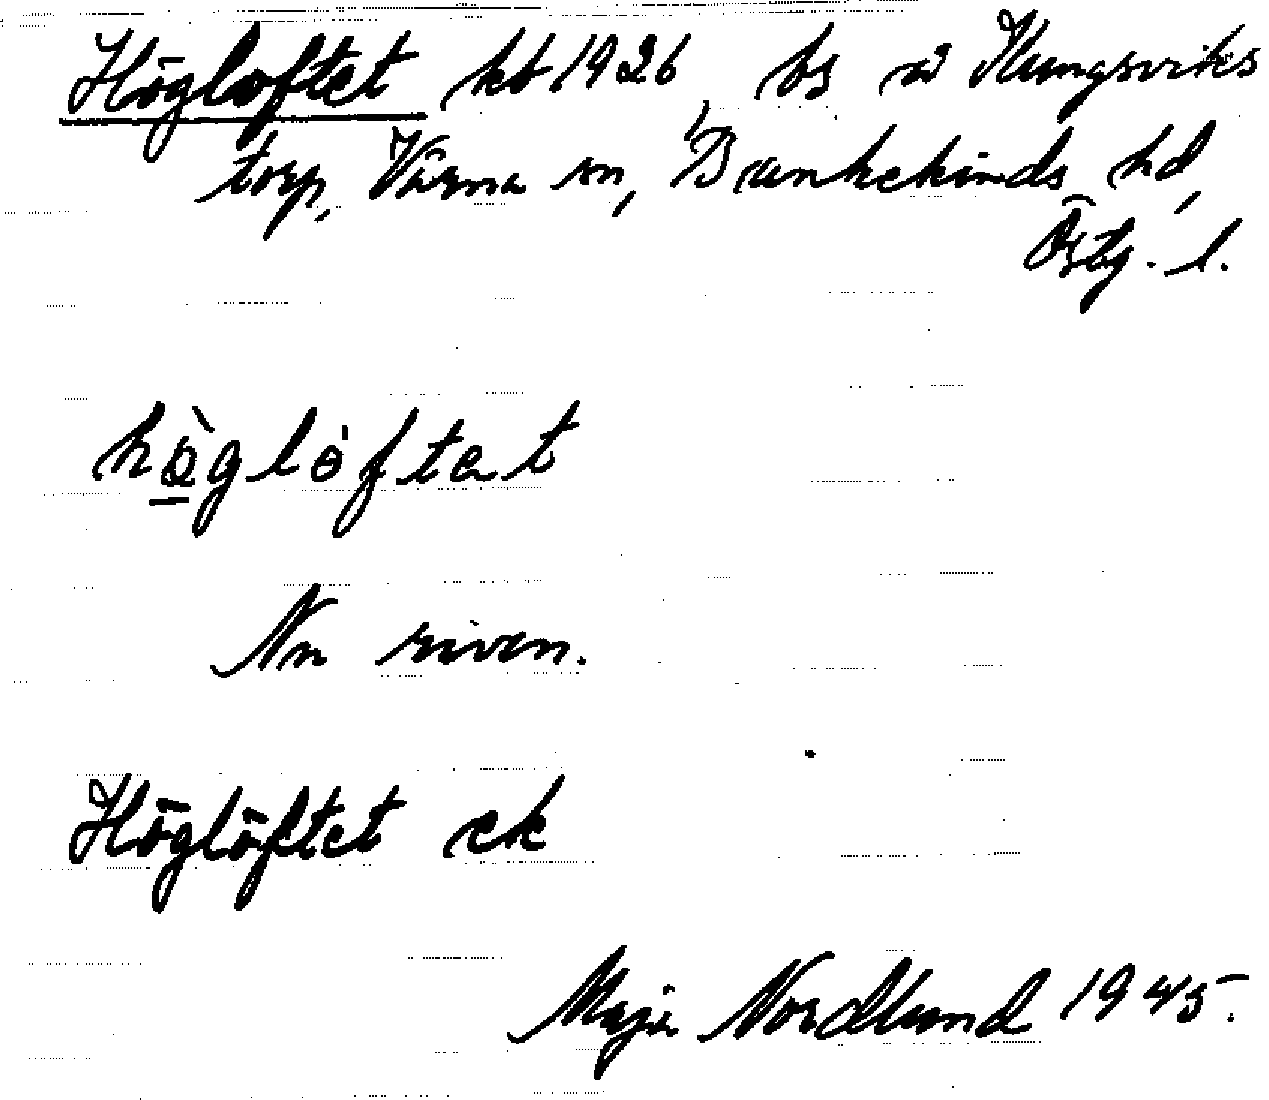 Högloftet kb 1926, bs u Kungsviks
torp, Värna sn, Bankekinds hd,
Östg. l.
hö̀glöftet
Nu riven.
Höglöftet ek
Maja Nordlund 1945.